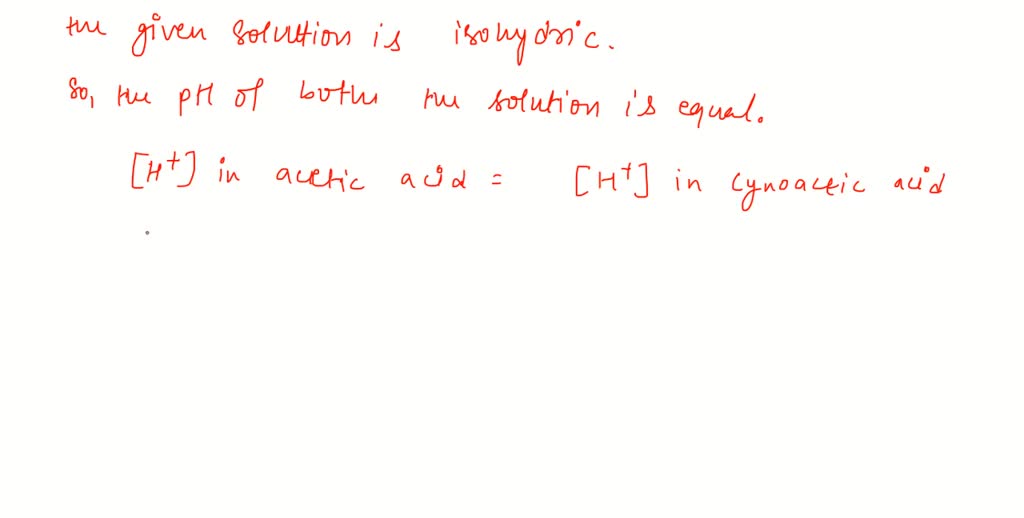 the given solution is isohydric.
So, the pH of both the solution is equal.
[H+] in acetic acid = [H+] in cynoacetic acid